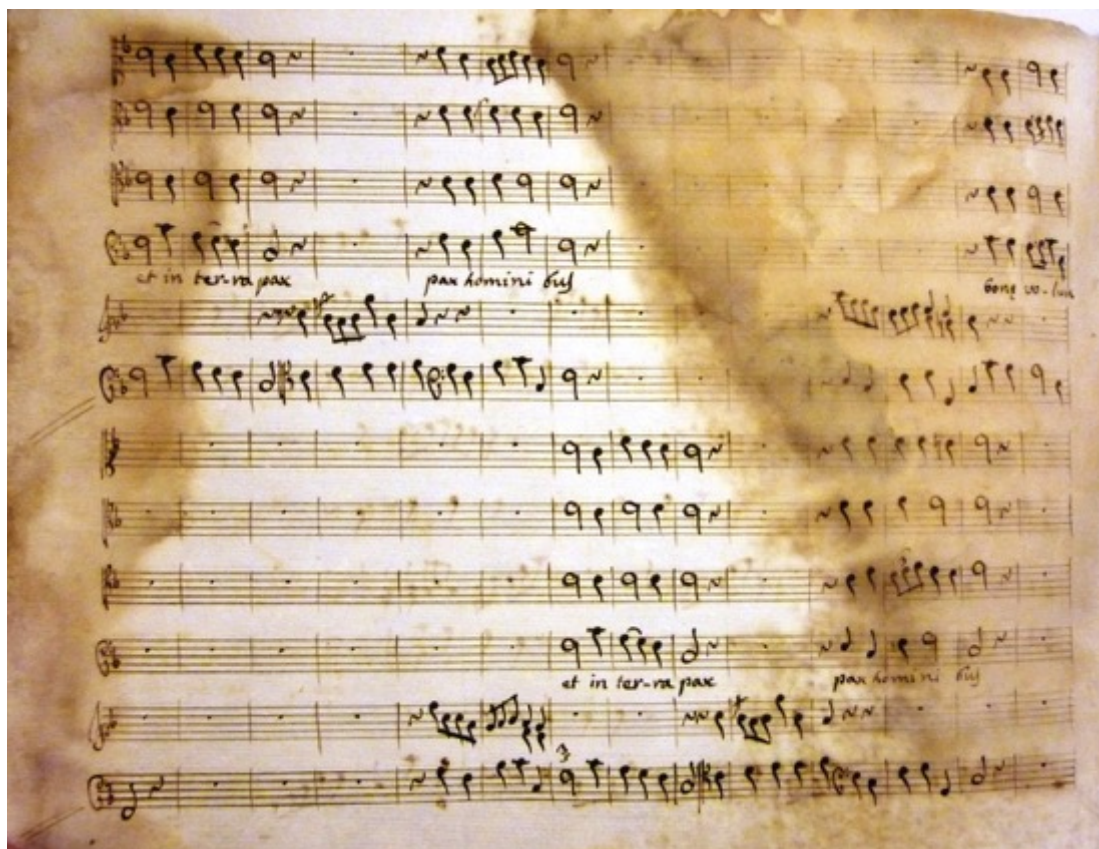 et in ter-ra pax pax homini bus bonę vo-lun
et in ter-ra pax pax homini bus